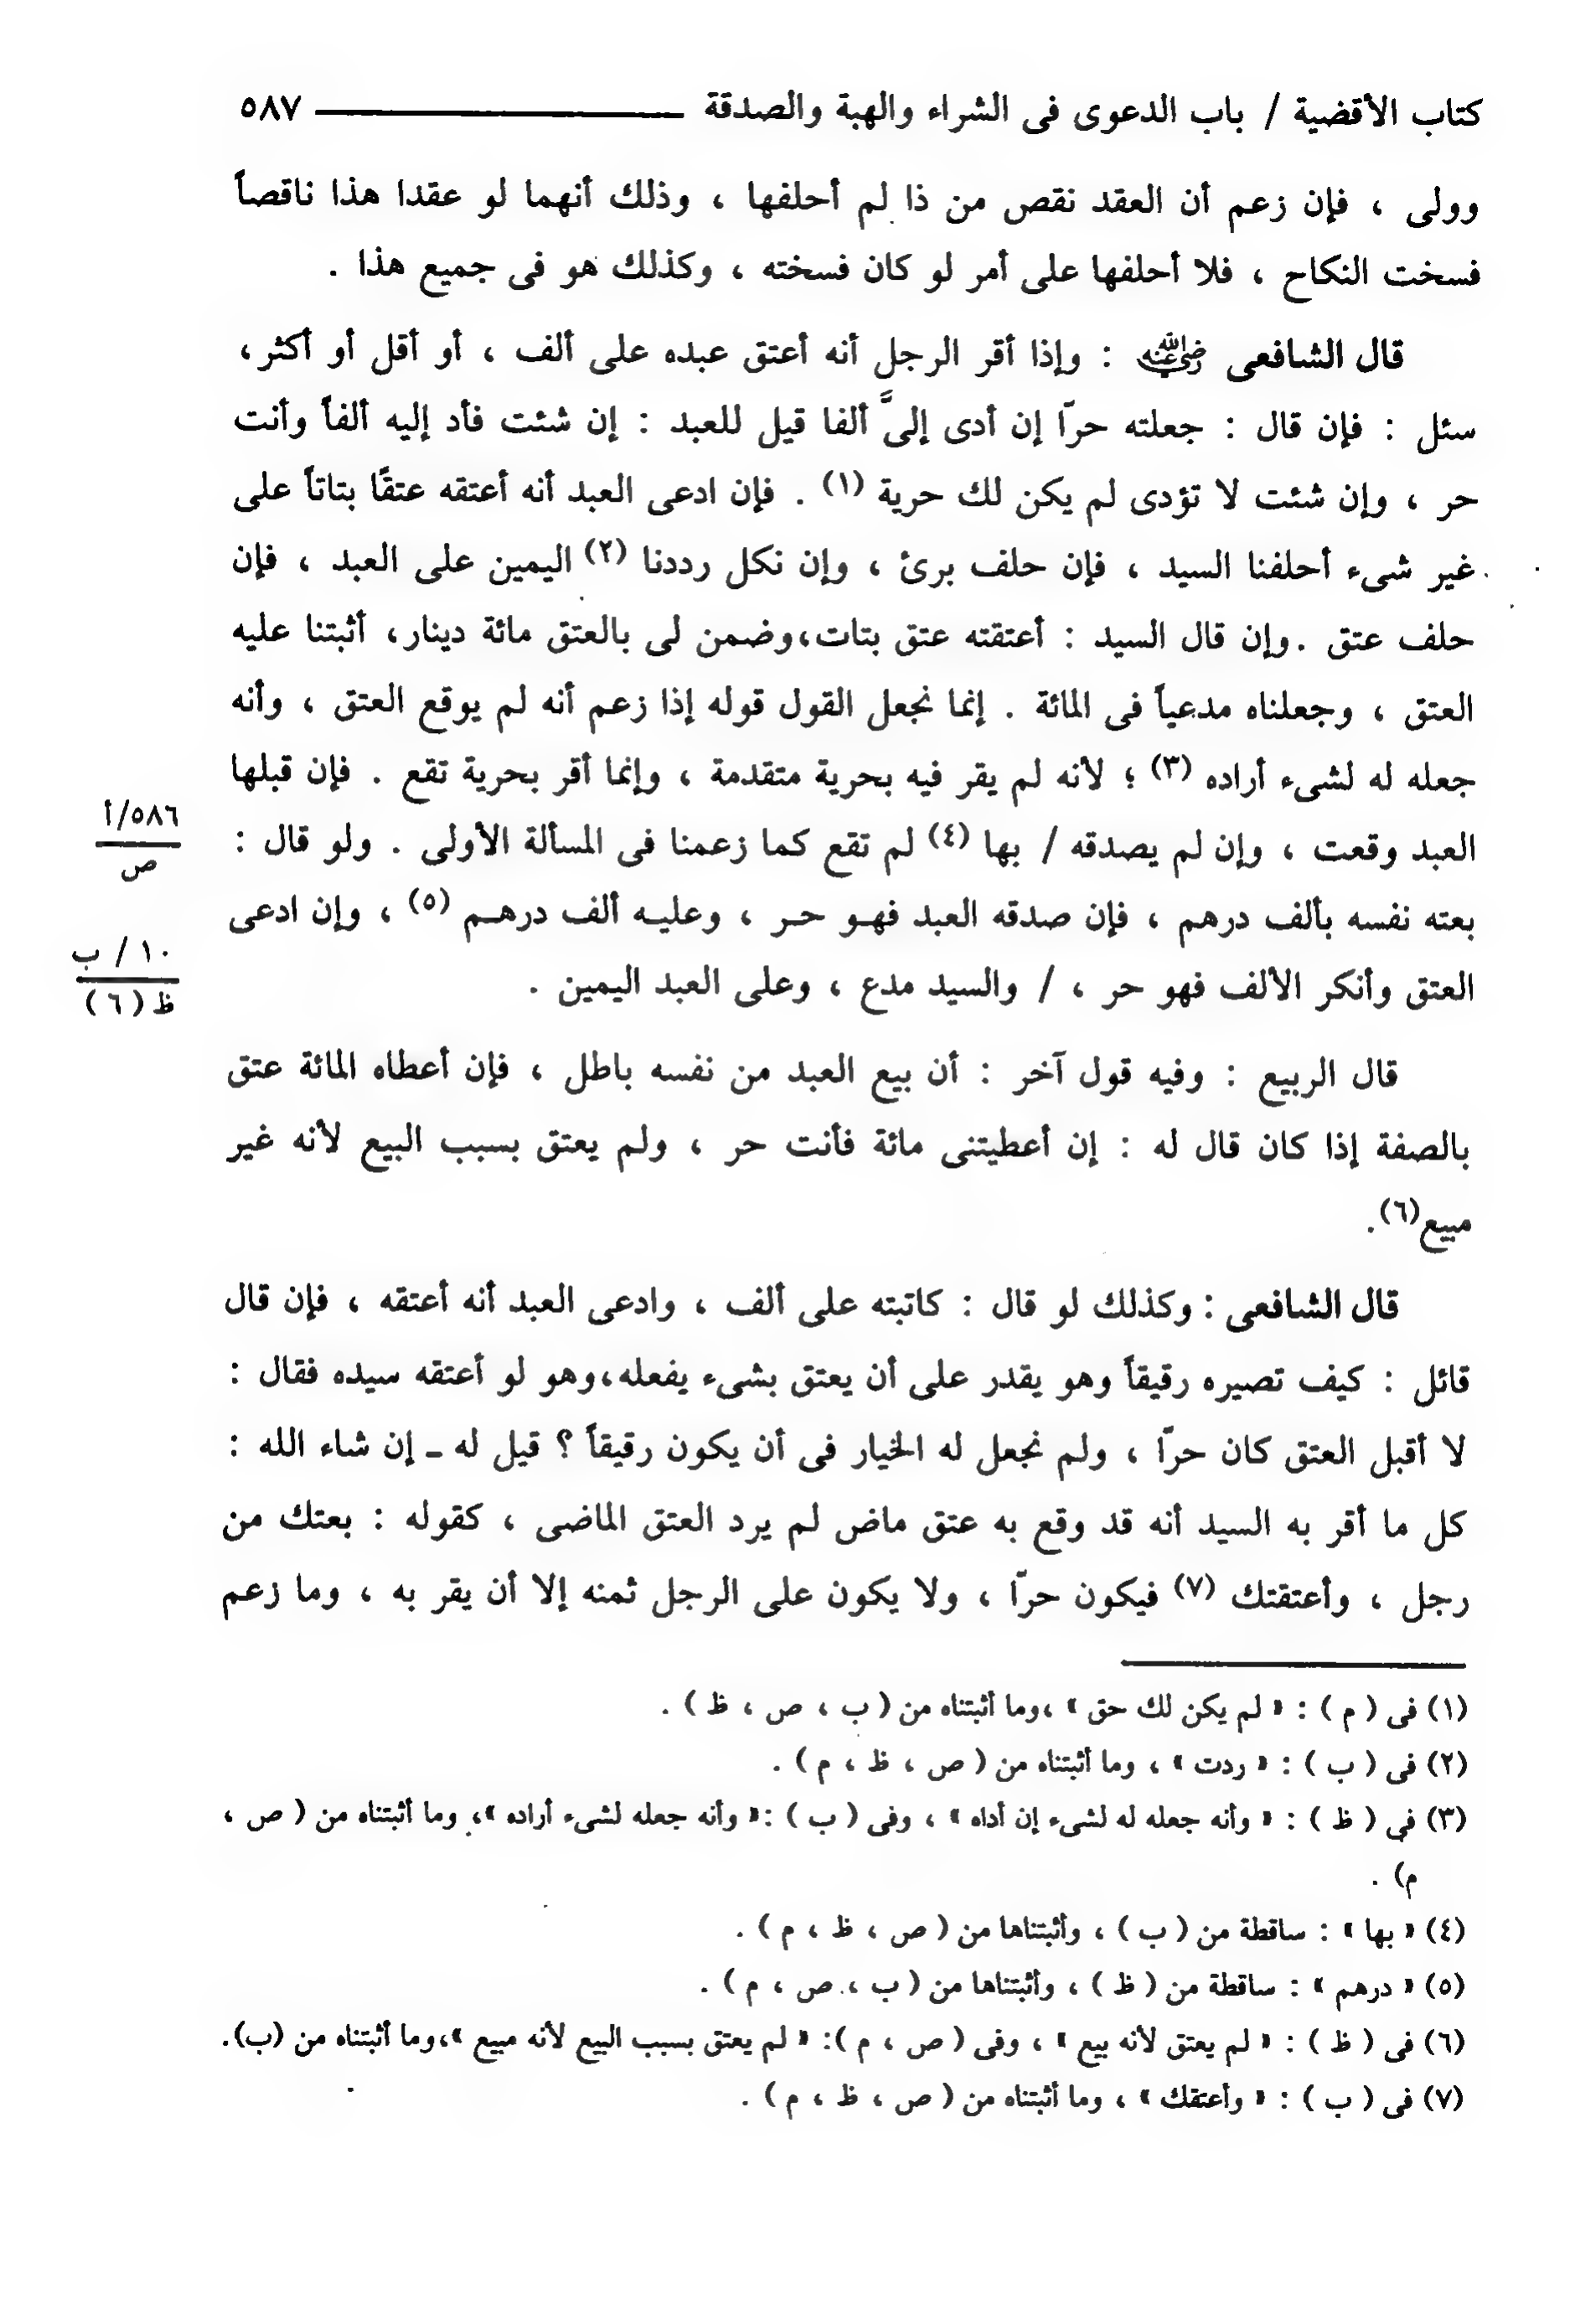 كتاب الأقضية / باب الدعوى فى الشراء والهبة والصدقة ٥٨٧
وولى ، فإن زعم أن العقد نقص من ذا لم أحلفها ، وذلك أنهما لو عقدا هذا ناقصاً
فسخت النكاح ، فلا أحلفها على أمر لو كان فسخته ، وكذلك هو فى جميع هذا .
قال الشافعى رضي الله عنه : وإذا أقر الرجل أنه أعتق عبده على ألف ، أو أقل أو أكثر،
سئل : فإن قال : جعلته حرّا إن أدى إلىَّ ألفا قيل للعبد : إن شئت فأد إليه ألفاً وأنت
حر ، وإن شئت لا تؤدى لم يكن لك حرية (١) . فإن ادعى العبد أنه أعتقه عتقًا بتاتاً على
غير شىء أحلفنا السيد ، فإن حلف برئ ، وإن نكل رددنا (٢) اليمين على العبد ، فإن
حلف عتق .وإن قال السيد : أعتقته عتق بتات،وضمن لى بالعتق مائة دينار، أثبتنا عليه
العتق ، وجعلناه مدعياً فى المائة . إنما نجعل القول قوله إذا زعم أنه لم يوقع العتق ، وأنه
جعله له لشىء أراده (٣) ؛ لأنه لم يقر فيه بحرية متقدمة ، وإنما أقر بحرية تقع . فإن قبلها
٥٨٦/أ
ص
العبد وقعت ، وإن لم يصدقه / بها (٤) لم تقع كما زعمنا فى المسألة الأولى . ولو قال :
بعته نفسه بألف درهم ، فإن صدقه العبد فهـو حـر ، وعليـه ألف درهـم (٥) ، وإن ادعى
١٠ / ب
ظ (٦)
العتق وأنكر الألف فهو حر ، / والسيد مدع ، وعلى العبد اليمين .
قال الربيع : وفيه قول آخر : أن بيع العبد من نفسه باطل ، فإن أعطاه المائة عتق
بالصفة إذا كان قال له : إن أعطيتنى مائة فأنت حر ، ولم يعتق بسبب البيع لأنه غير
مبيع(٦).
قال الشافعى : وكذلك لو قال : كاتبته على ألف ، وادعى العبد أنه أعتقه ، فإن قال
قائل : كيف تصيره رقيقاً وهو يقدر على أن يعتق بشىء يفعله،وهو لو أعتقه سيده فقال :
لا أقبل العتق كان حرّا ، ولم نجعل له الخيار فى أن يكون رقيقاً ؟ قيل له ـ إن شاء الله :
كل ما أقر به السيد أنه قد وقع به عتق ماض لم يرد العتق الماضى ، كقوله : بعتك من
رجل ، وأعتقتك (٧) فيكون حرّا ، ولا يكون على الرجل ثمنه إلا أن يقر به ، وما زعم
(١) فى ( م ) : « لم يكن لك حق » ،وما أثبتناه من ( ب ، ص ، ظ ) .
(٢) فى ( ب ) : « ردت » ، وما أثبتناه من ( ص ، ظ ، م ) .
(٣) فى ( ظ ) : « وأنه جعله له لشىء إن أداه » ، وفى ( ب ) :« وأنه جعله لشىء أراده »، وما أثبتناه من ( ص ،
م) .
(٤) « بها » : ساقطة من ( ب ) ، وأثبتناها من ( ص ، ظ ، م ) .
(٥) « درهم » : ساقطة من ( ظ ) ، وأثبتناها من ( ب ، ص ، م ) .
(٦) فى ( ظ ) : « لم يعتق لأنه بيع » ، وفى ( ص ، م ): « لم يعتق بسبب البيع لأنه مبيع »،وما أثبتناه من (ب).
(٧) فى ( ب ) : « وأعتقك » ، وما أثبتناه من ( ص ، ظ ، م ) .